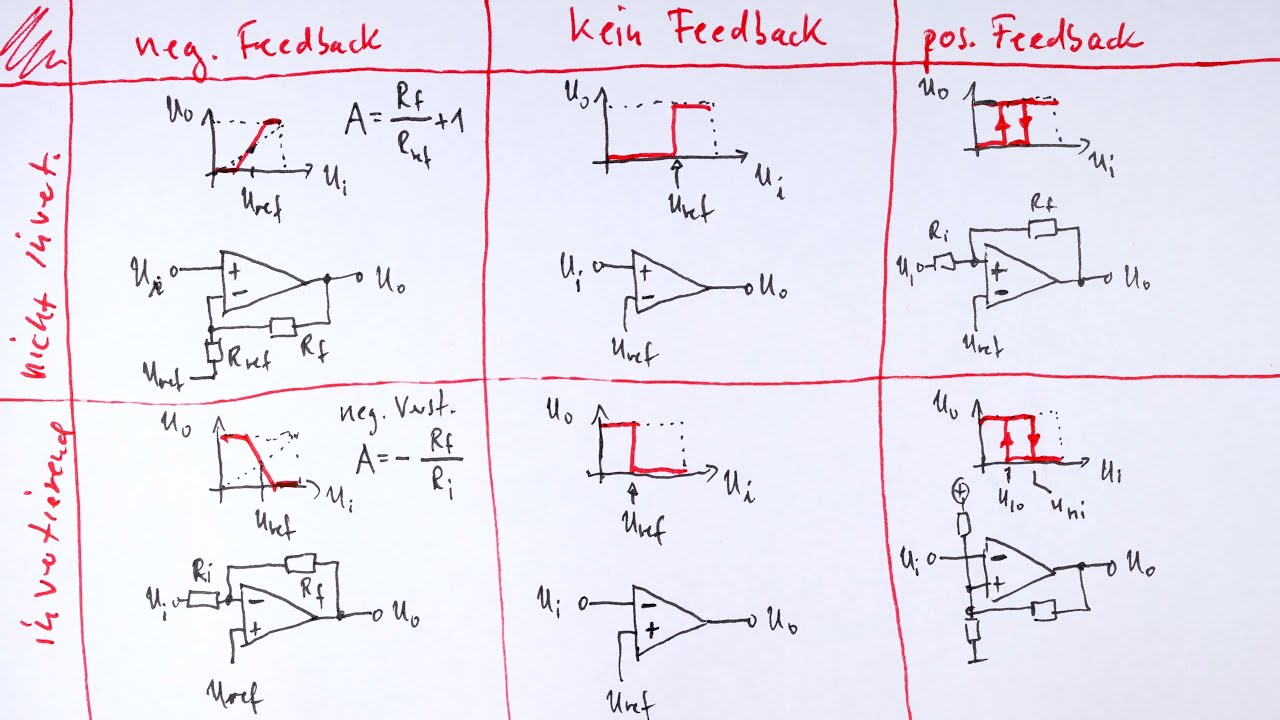 neg. Feedback
kein Feedback
pos. Feedback
nicht invert.
Uo
A = Rf/Rref + 1
Ui
Uref
Ui
+
-
Uo
Rref
Rf
Uref
Uo
Ui
Uref
Ui
+
-
Uo
Uref
Uo
Ui
Rf
Ri
Ui
+
-
Uo
Uref
invertierend
Uo
neg. Verst.
A = - Rf/Ri
Ui
Uref
Ri
Rf
Ui
-
+
Uo
Uref
Uo
Ui
Uref
Ui
-
+
Uo
Uref
Uo
Ui
Ulo
Uhi
+
Ui
-
+
Uo